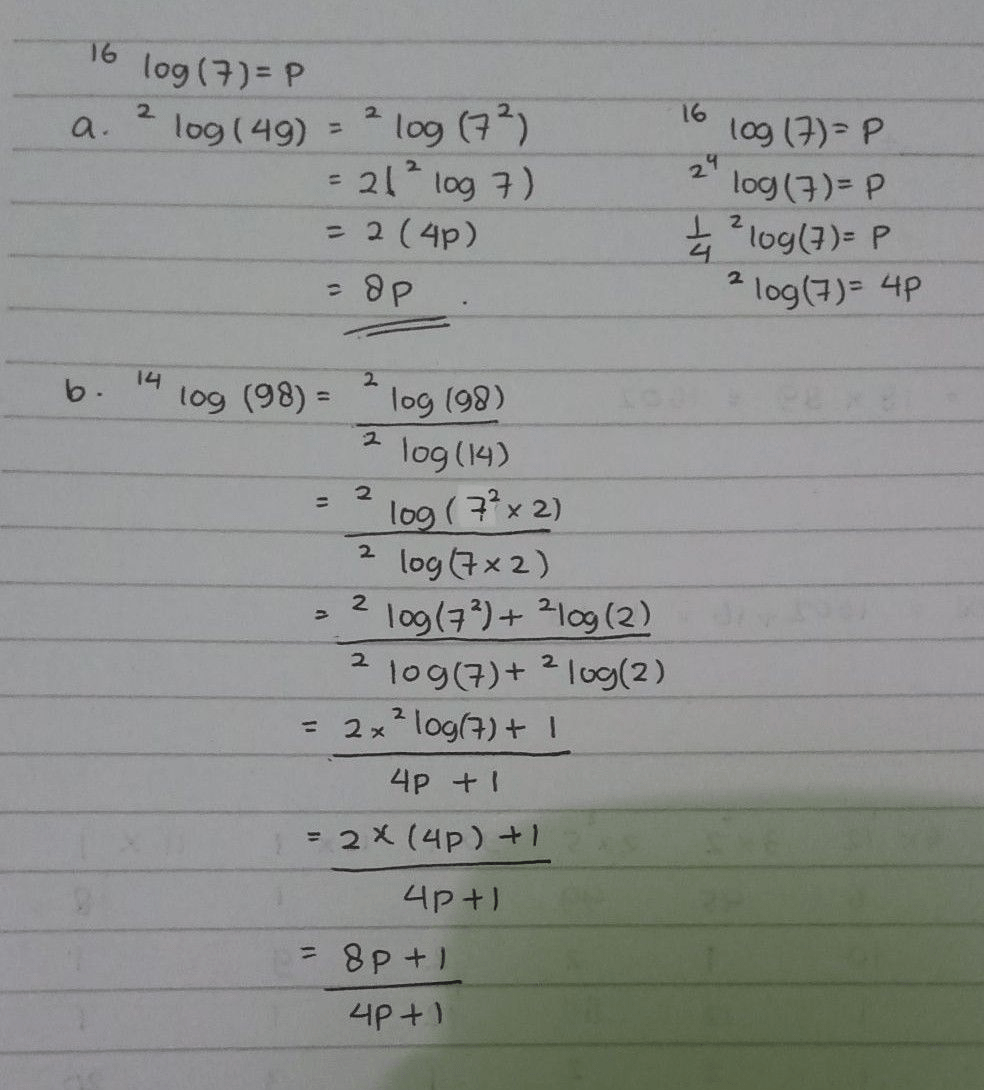 ¹⁶ log(7) = P
a. ² log(49) = ² log(7²)
= 2(² log 7)
= 2(4p)
= 8p.
¹⁶ log(7) = P
2⁴ log(7) = P
1/4 ² log(7) = P
² log(7) = 4P
b. ¹⁴ log(98) = ² log(98)
² log(14)
= ² log(7² × 2)
² log(7 × 2)
= ² log(7²) + ² log(2)
² log(7) + ² log(2)
= 2 × ² log(7) + 1
4p + 1
= 2 × (4p) + 1
4p + 1
= 8p + 1
4p + 1